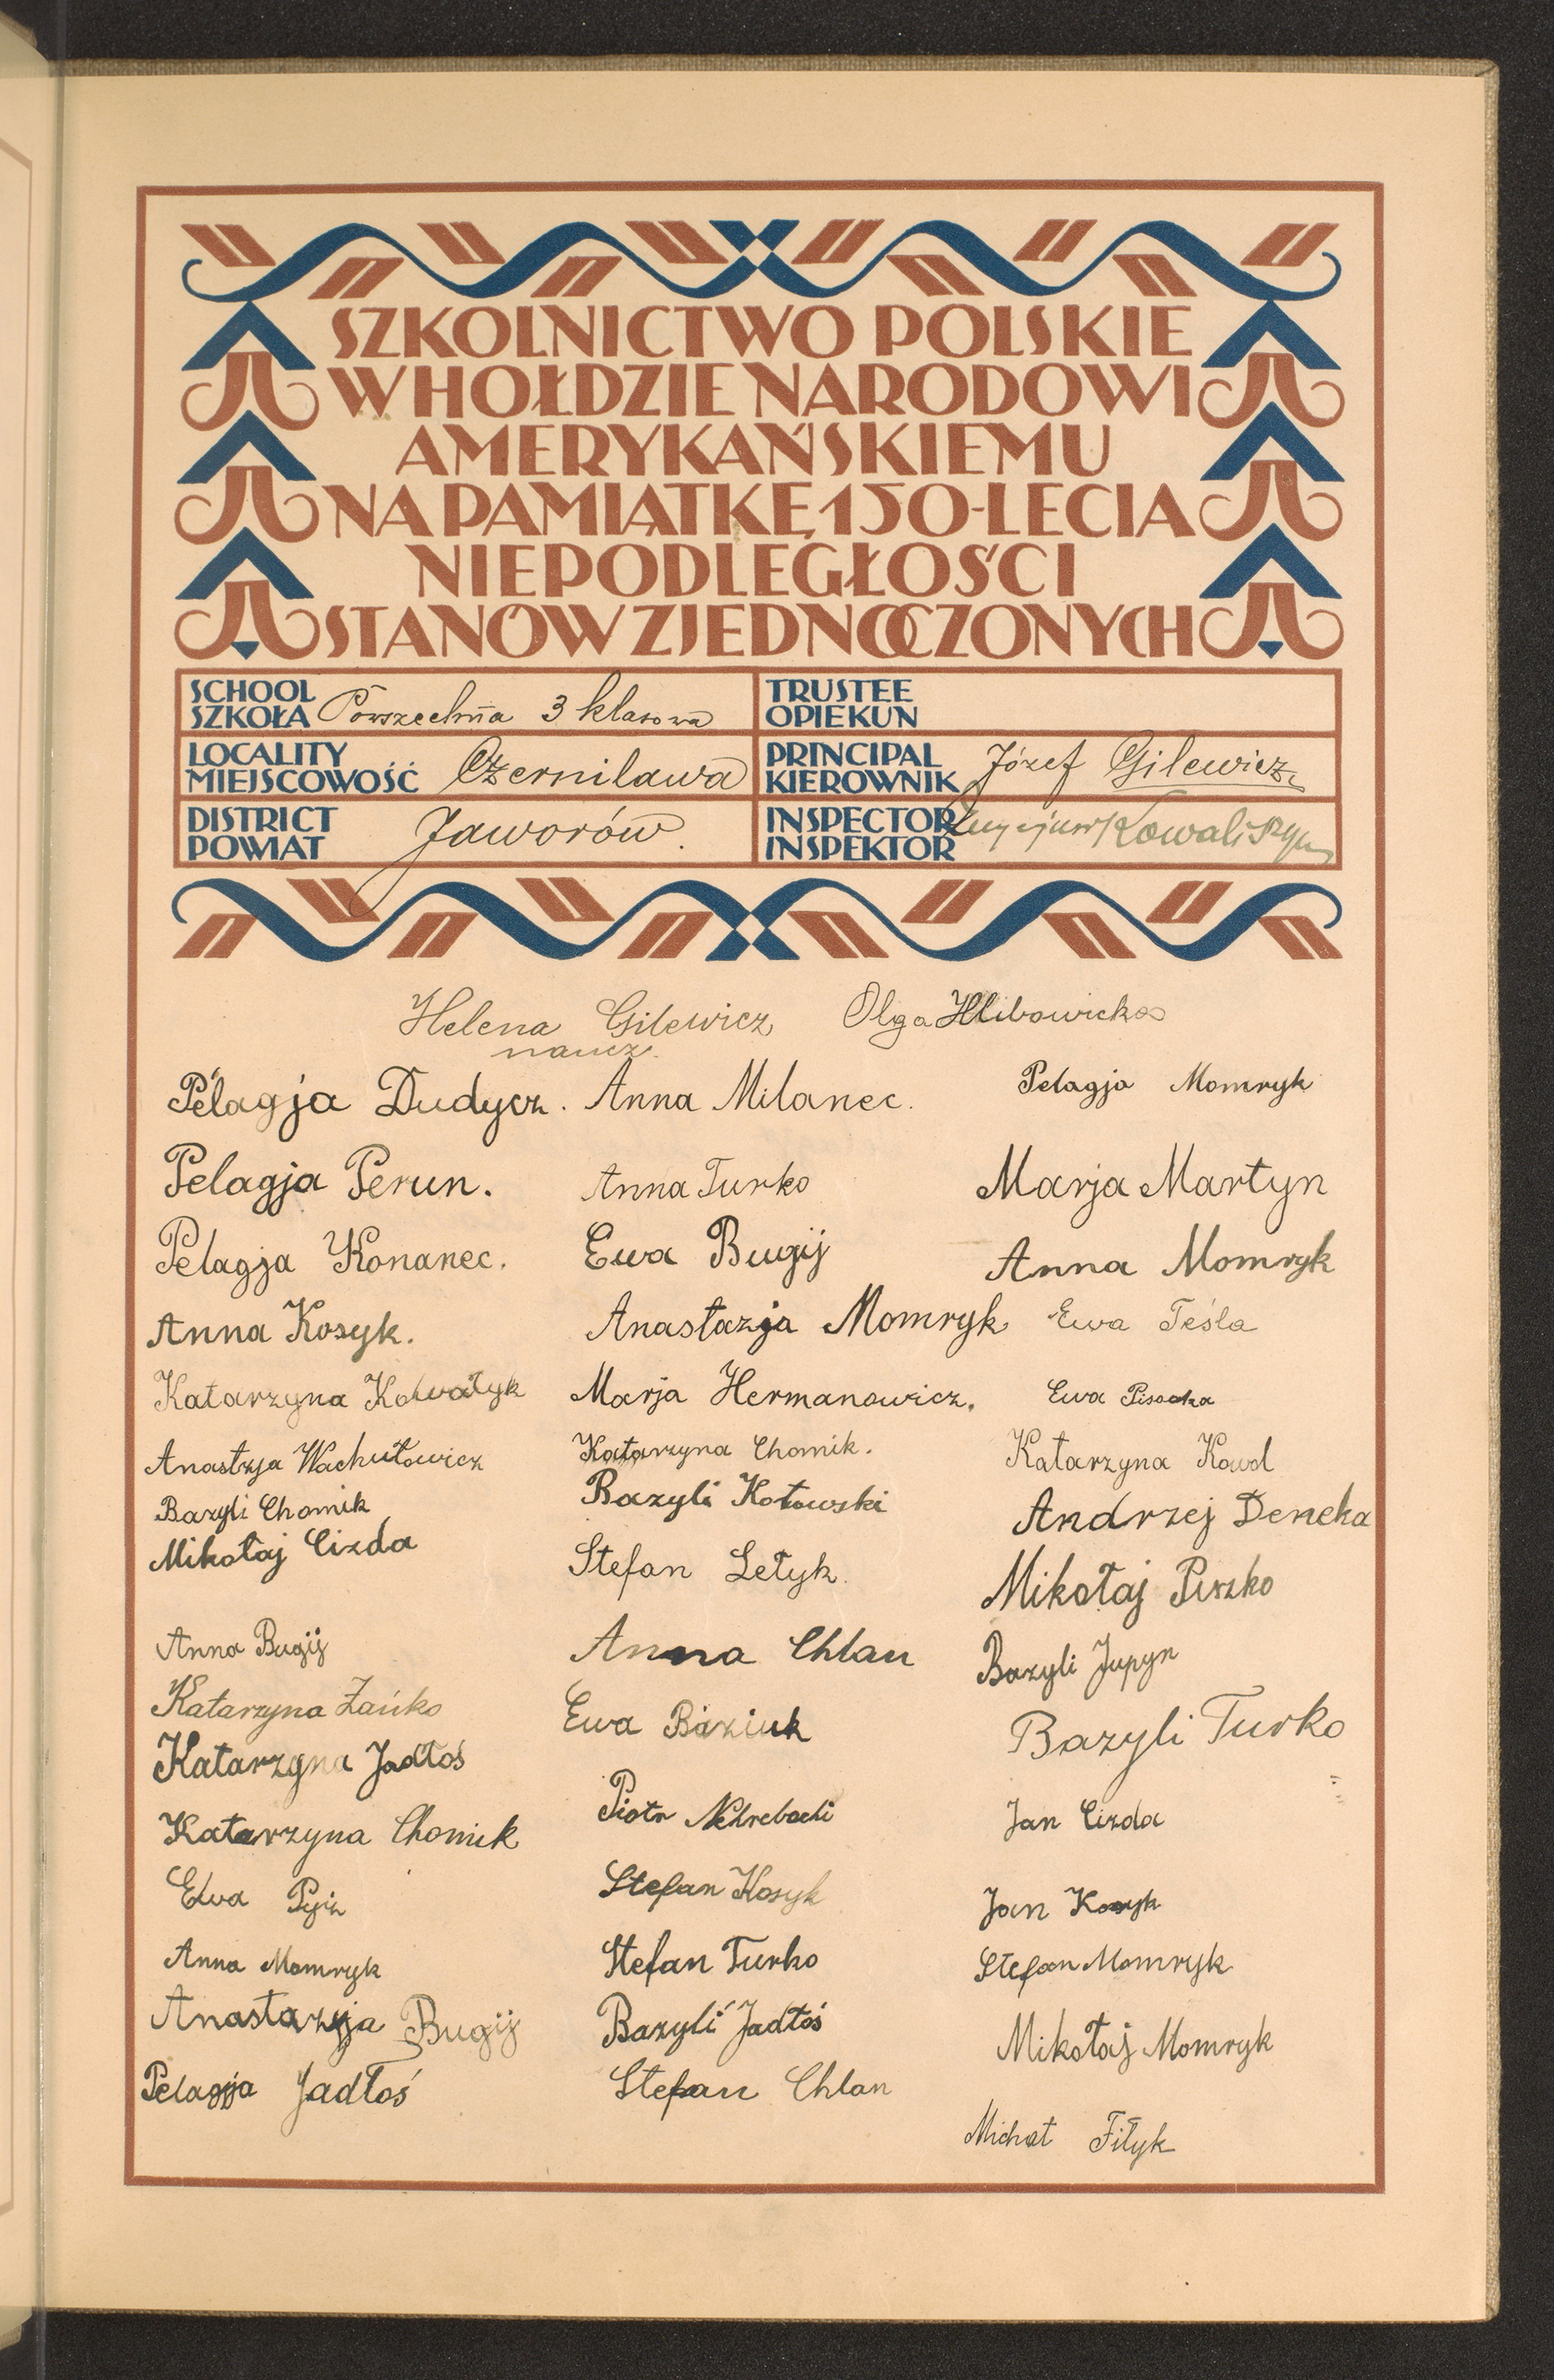 SZKOLNICTWO POLSKIE
W HOŁDZIE NARODOWI
AMERYKAŃSKIEMU
NA PAMIĄTKĘ 150-LECIA
NIEPODLEGŁOŚCI
STANÓW ZJEDNOCZONYCH
SCHOOL
SZKOŁA Powszechna 3 klasowa
TRUSTEE
OPIEKUN
LOCALITY
MIEJSCOWOŚĆ Czernilawa
PRINCIPAL
KIEROWNIK Józef Gilewicz
DISTRICT
POWIAT Jaworów.
INSPECTOR
INSPEKTOR Kowaliszyn
Helena Gilewicz Olga Hlibowicka
naucz.
Pelagja Dudycz. Anna Milanec. Pelagja Momryk
Pelagja Perun. Anna Turko Marja Martyn
Pelagja Konanec. Ewa Bugij Anna Momryk
Anna Kosyk. Anastazja Momryk Ewa Teśla
Katarzyna Kowałyk Marja Hermanowicz. Ewa
Anastzja Wachułowicz Katarzyna Chomik. Katarzyna
Bazyli Chomik Bazyli Kotowski Andrzej Deneka
Mikołaj Cizda Stefan Letyk. Mikołaj
Anna Bugij Anna Chlan Bazyli Jupyn
Katarzyna Zańko Ewa Baziuk Bazyli Turko
Katarzyna Jadłoś Piotr Jan Cizda
Katarzyna Chomik Stefan Kosyk Jan Kosyk
Ewa Stefan Turko Stefan Momryk
Anna Momryk Bazyli Jadłoś Mikołaj Momryk
Anastazyja Bugij Stefan Chlan Michał Fiłyk
Pelagja Jadłoś